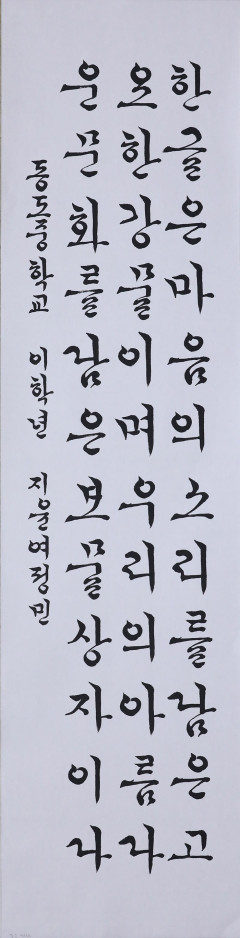 한글은마음의소리를담은고
요한강물이며우리의아름다
운문화를담은보물상자이다
동도중학교 이학년 여정민